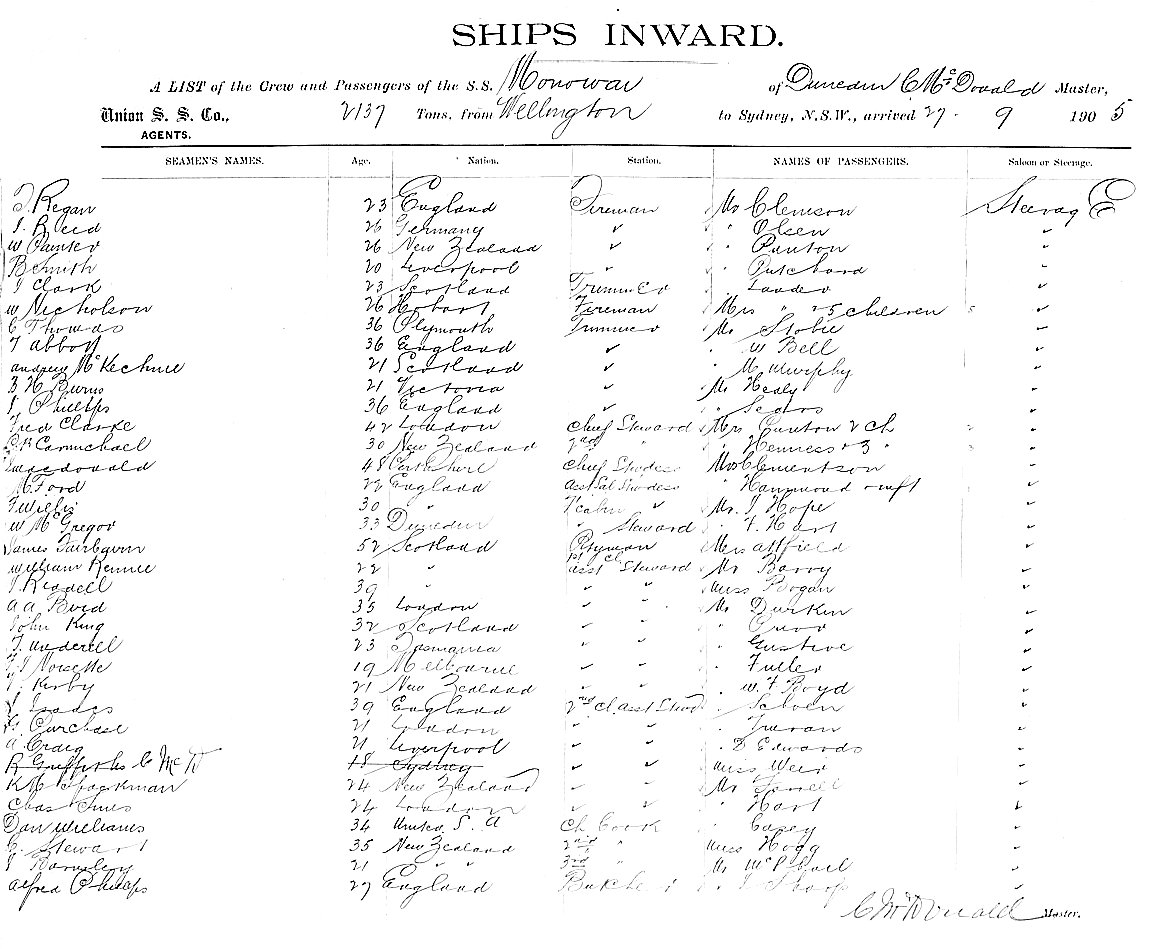 SHIPS INWARD.
A LIST of the Crew and Passengers of the S.S. Monowai of Dunedin C McDonald Master,
Union S. S. Co., 2137 Tons, from Wellington to Sydney, N.S.W., arrived 27 - 9 1905
AGENTS.
SEAMEN'S NAMES. Age. Nation. Station. NAMES OF PASSENGERS. Saloon or Steerage.
J. Regan 23 England Fireman Mr Clemson Steerag E
J. Reid 26 Germany " " Olsen "
W Painter 26 New Zealand " " Panton "
B Smith 20 Liverpool " " Pritchard "
J Clark 23 Scotland Trimmer " Lander "
W Nicholson 26 Hobart Fireman Mrs " & 5 children "
C Thomas 36 Plymouth Trimmer Mr Stobie "
T Abbott 36 England " " W Bell "
Andrew McKechnie 21 Scotland " " M Murphy "
B H Burns 21 Victoria " Mr Healy "
J Phillips 36 England " " Sears "
Fred Clarke 42 London Chief Steward Mrs Canton & Ch "
Carmichael 30 New Zealand 2nd " " Henness & 3 "
Macdonald 48 Perthshire Chief Stwdess Mrs Clementson "
M Ford 22 England Asst Sal Stwdess " Hammond & inft "
F Willis 30 " " Mr. J Hope "
W McGregor 33 Dunedin " Steward " F. Hart "
James Fairbairn 52 Scotland Ptryman Mrs Attfield "
William Rennie 22 " 1st Cl Asst Steward Mr Barry "
J Riddell 39 " " " Miss Bogan "
A A Boid 35 London " " Mr Durkin "
John King 32 Scotland " " "
T. Underell 23 Tasmania " " " Gustive "
Morsette 19 Melbourne " " " Fuller "
Kirby 21 New Zealand " " " W. F Boyd "
J Isaacs 39 England 2nd Cl. Asst Stwd "
G. Purchase 21 London " " "
A Craig 21 Liverpool " " " D Edwards "
R Griffiths C McD 18 Sydney " " Miss Weir "
K M Spackman 24 New Zealand " " Mr "
Chas Innes 24 London " " " Hart "
Dan Williams 34 United S. A Ch Cook " Casey "
C. Stewart 35 New Zealand 2nd " Miss Hogg "
J 21 " " 3rd " Mr McPhail "
Alfred Phillips 27 England Butcher " J Sharp "
C McDonald Master.